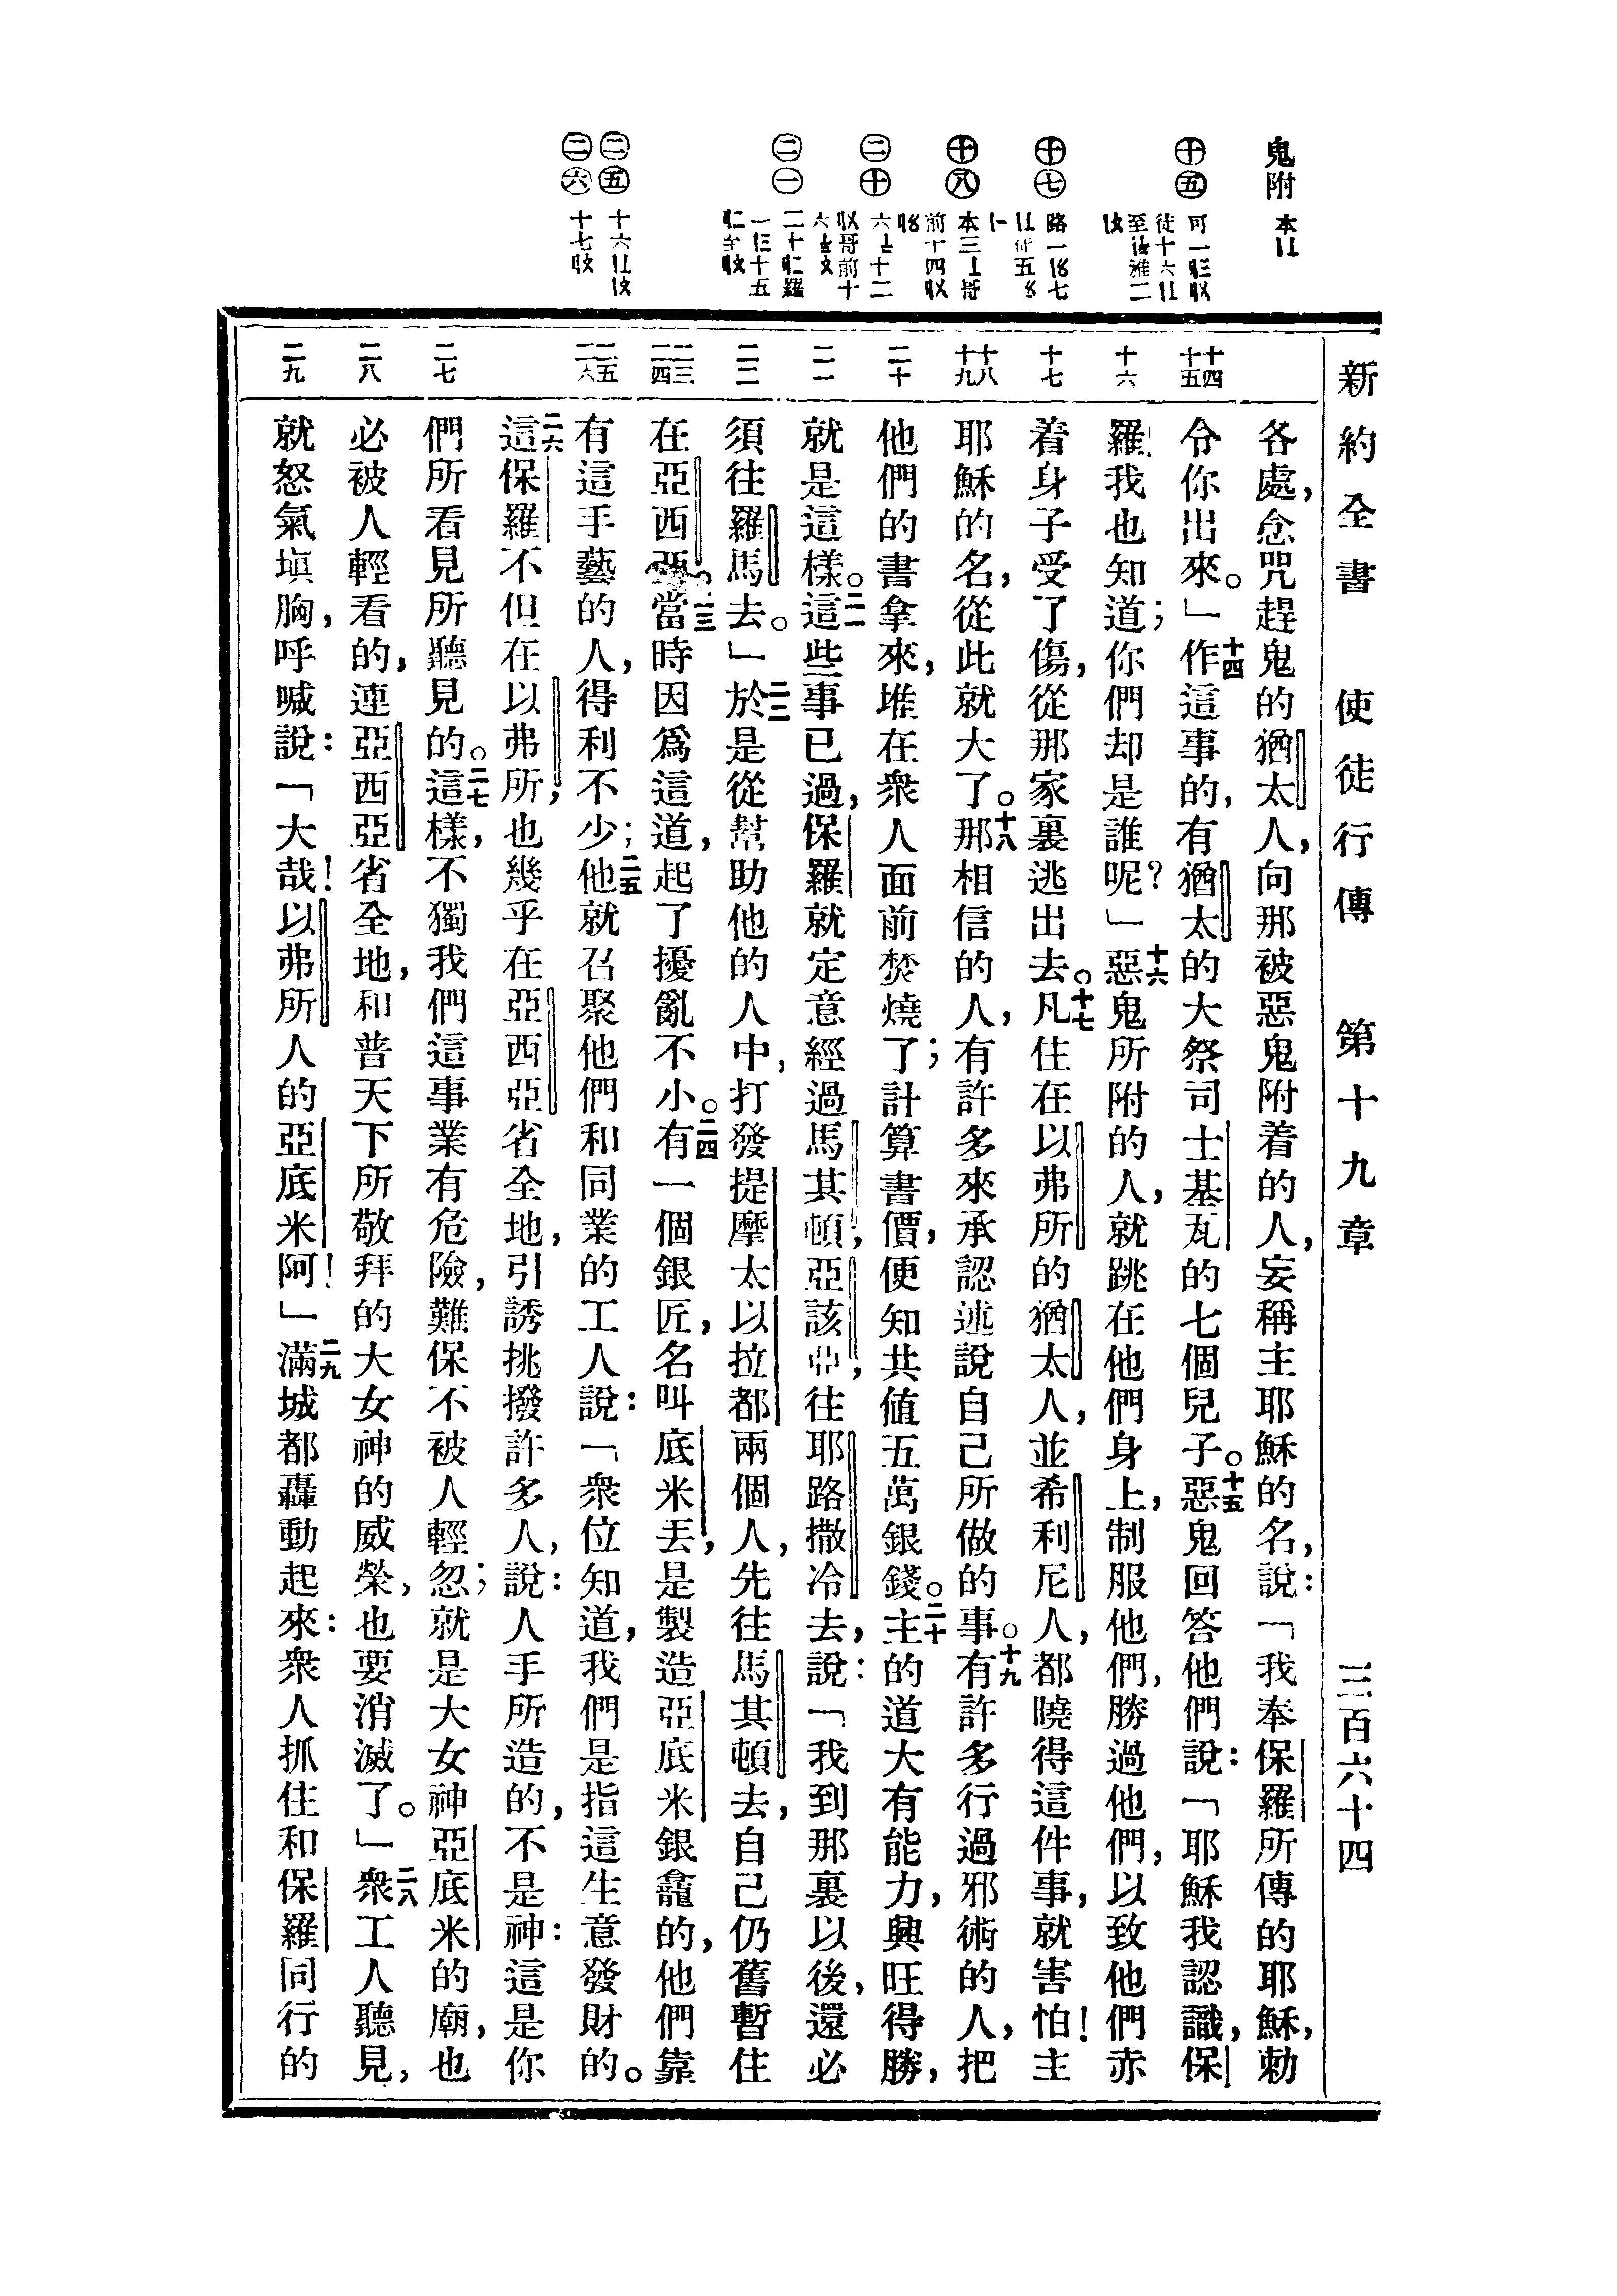 新約全書 使徒行傳 第十九章 三百六十四
鬼附
十五
十七
十八
二十
二一
二五 十六
二六 十七
十四 十五 十六 十七 十八 十九 二十 二一 二二 二三 二四 二五 二六 二七 二八 二九
各處,念咒趕鬼的猶太人,向那被惡鬼附着的人,妄稱主耶穌的名,說:「我奉保羅所傳的耶穌,勅
令你出來。」十四作這事的,有猶太的大祭司士基瓦的七個兒子。十五惡鬼回答他們說:「耶穌我認識,保
羅我也知道;你們却是誰呢?」十六惡鬼所附的人,就跳在他們身上,制服他們,勝過他們,以致他們赤
着身子受了傷,從那家裏逃出去。十七凡住在以弗所的猶太人,並希利尼人,都曉得這件事,就害怕!主
耶穌的名,從此就大了。十八那相信的人,有許多來承認述說自己所做的事。十九有許多行過邪術的人,把
他們的書拿來,堆在衆人面前焚燒了;計算書價,便知共值五萬銀錢。二十主的道大有能力,興旺得勝,
就是這樣。二一這些事已過,保羅就定意經過馬其頓,亞該亞,往耶路撒冷去,說:「我到那裏以後,還必
須往羅馬去。」二二於是從幫助他的人中,打發提摩太以拉都兩個人,先往馬其頓去,自己仍舊暫住
在亞西亞。二三當時因爲這道,起了擾亂不小。二四有一個銀匠,名叫底米丟,是製造亞底米銀龕的,他們靠
有這手藝的人,得利不少;二五他就召聚他們和同業的工人說:「衆位知道,我們是指這生意發財的。
二六這保羅不但在以弗所,也幾乎在亞西亞省全地,引誘挑撥許多人,說:人手所造的,不是神:這是你
們所看見所聽見的。二七這樣,不獨我們這事業有危險,難保不被人輕忽;就是大女神亞底米的廟,也
必被人輕看的,連亞西亞省全地,和普天下所敬拜的大女神的威榮,也要消滅了。」二八衆工人聽見,
就怒氣塡胸,呼喊說:「大哉!以弗所人的亞底米阿!」二九滿城都轟動起來:衆人抓住和保羅同行的